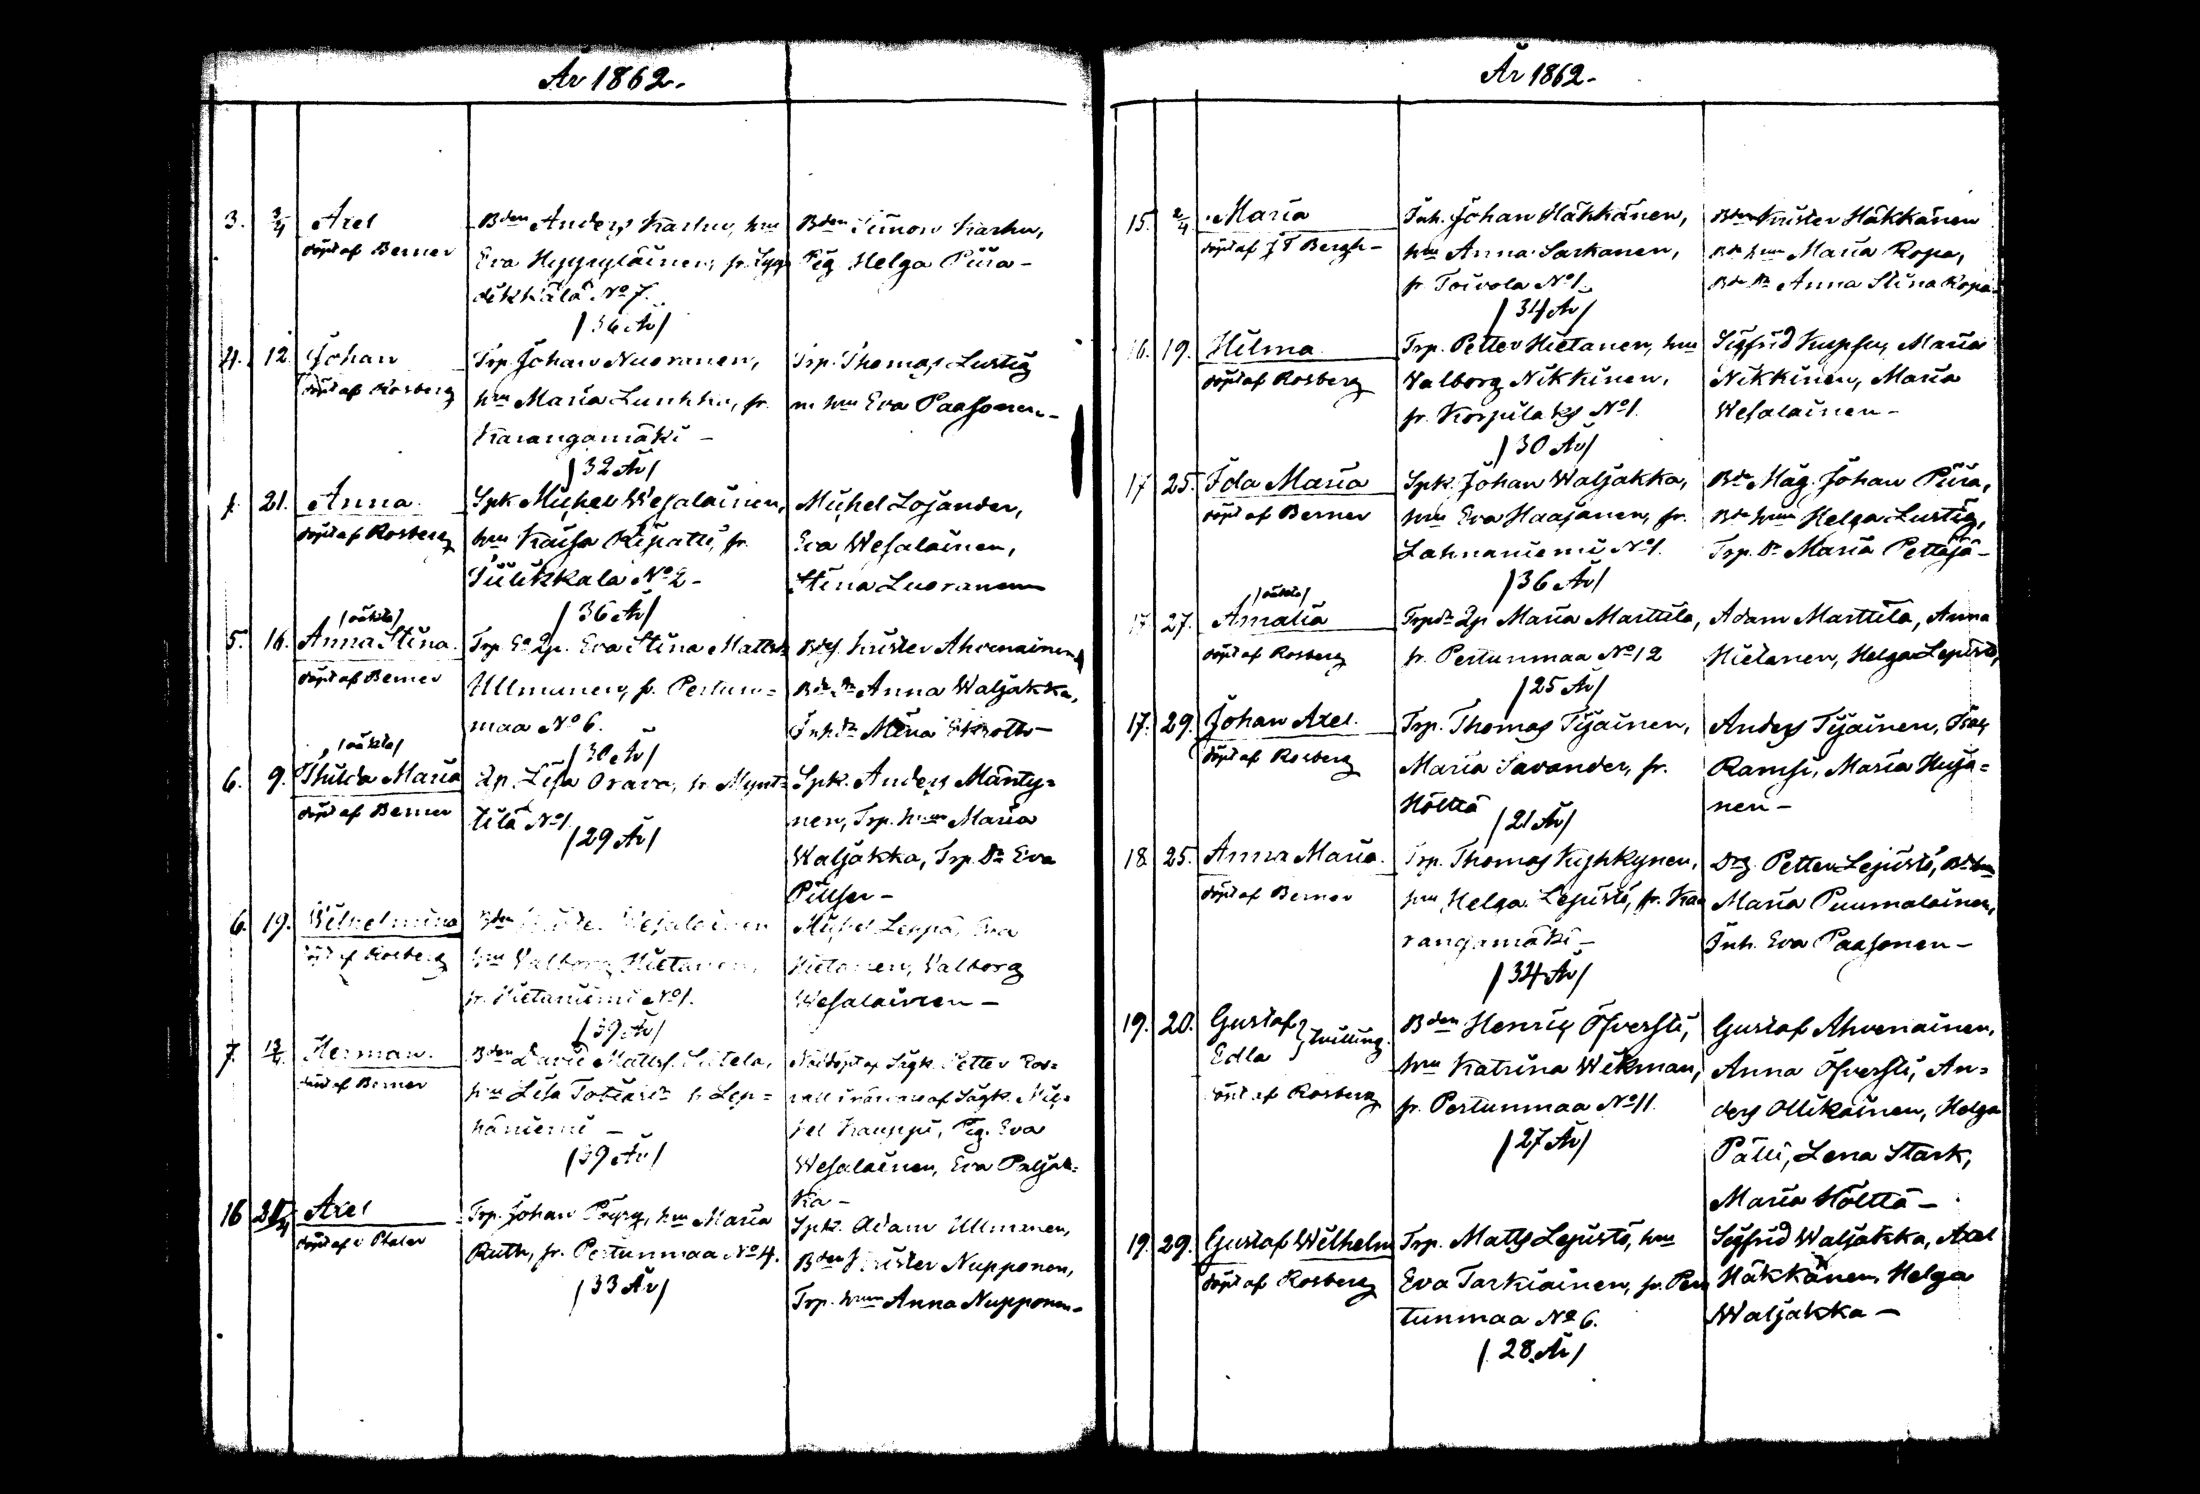 År 1862.
3. 3/4 Axel
döpt af Berner
Bden Anders Karhu, hru
Eva Hyyryläinen, fr. Syys
dikkälä No 7.
/36 År/
Bden Simon Karhu,
Pig Helga Piira –
4. 12. Johan
döpt af Rosberg
Trp. Johan Nuoranen,
hru Maria Lunkka, fr.
Karangamäki –
/32 År/
Trp. Thomas Lustig
m hru Eva Paasonen –
1. 21. Anna
döpt af Rosberg
Spk Michel Wesalainen,
hru Kaisa Ripatti, fr.
Tiilikkala No 2 –
/36 År/
Michel Lojander,
Eva Wesalainen,
Stina Luoranen
5. 16. /oäkta/
Anna Stina.
döpt af Berner
Eva Stina Mattsdr
Ullmanen, fr. Pertun=
maa No 6.
/30 År/
Krister Ahvenainen,
Bde Dr Anna Waljakka,
Inh. Dr Mina
6. 9. /oäkta/
Thilda Maria
döpt af Berner
Qp. Lisa Orava, fr. Mynt=
tilä No 1.
/29 År/
Spk. Anders Mänty=
nen, Trp. hrun Maria
Waljakka, Trp. Dr Eva
6. 19. Wilhelmina
döpt af Rosberg
Bden Wesalainen
hru Valborg Hietanen,
fr. Hietaniemi No 1.
/39 År/
Michel Leppä, Eva
Hietanen, Valborg
Wesalainen –
7. Herman.
döpt af Berner
Bden David Mattss.
hru Lisa Tobiasdr fr. Lep=
häniemi –
/39 År/
Nöddöpt af Sågk. Petter Ros=
Kauppi, Pig. Eva
Wesalainen, Eva Paljak=
ka –
16 Axel
döpt af
Trp. Johan Pryry, hru Maria
Ruth, fr. Pertunmaa No 4.
/33 År/
Spk. Adam Ullmanen,
Bden Krister Nupponen,
Trp. hrun Anna Nupponen –
År 1862.
15. 2/4 Maria
döpt af J T Bergh –
Inh. Johan Häkkänen,
hru Anna Sarkanen,
fr. Toivola No 1.
/34 År/
Bden Krister Häkkänen
Bde hru Maria Ropa,
Bde Dr Anna Stina Ropa –
16. 19. Hilma
döpt af Rosberg
Trp. Petter Hietanen, hru
Valborg Nikkinen,
fr. Korpilaks No 1.
/30 År/
Sigfrid Maria
Nikkinen, Maria
Wesalainen –
17 25. Ida Maria
döpt af Berner
Spk. Johan Waljakka,
hru Eva Haajanen, fr.
Lahnaniemi No 1.
/36 År/
Bde Måg. Johan Piira,
Bde hrun Helga Lustig,
Trp. Dr Maria Pettäjä –
17 27. /oäkta/
Amalia
döpt af Rosberg
Trpdr Qp Maria Marttila,
fr. Pertunmaa No 12
/25 År/
Adam Marttila, Anna
Hietanen, Helga Lepistö,
17. 29. Johan Axel.
döpt af Rosberg
Trp. Thomas Tijainen,
Maria Savander, fr.
Hölttä
/21 År/
Anders Tijainen, Isak
Ramsi, Maria Huja=
nen –
18 25. Anna Maria.
döpt af Berner
Trp. Thomas Kyhkynen,
hru Helga Lepistö, fr. Ka
rangamäki –
/34 År/
Drg. Petter Lepistö, Bde hru
Maria Puumalainen,
Inh. Eva Paasonen –
19. 20. Gustaf } Tvilling.
Edla
döpt af Rosberg
Bden Henrik Öfversti,
hru Katrina Wikman,
fr. Pertunmaa No 11.
/27 År/
Gustaf Ahvenainen,
Anna Öfversti, An=
ders Ollikainen, Helga
Pälli, Lena Stark,
Maria Hölttä –
19. 29. Gustaf Wilhelm
döpt af Rosberg
Trp. Matts Lepistö, hru
Eva Tarkiainen, fr. Per
tunmaa No 6.
/28 År/
Sigfrid Waljakka, Axel
Häkkänen, Helga
Waljakka –